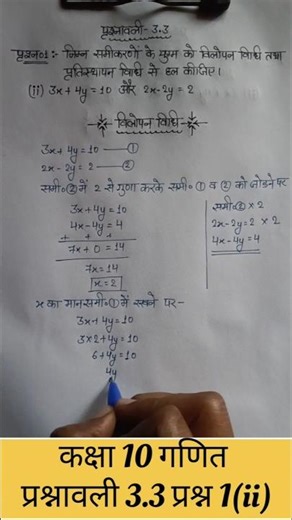 प्रश्नावली- 3.3
प्रश्न01:- निम्न समीकरणों के युग्म को विलोपन विधि तथा
प्रतिस्थापन विधि से हल कीजिए।
(ii) 3x+4y=10 और 2x-2y=2
विलोपन विधि
3x+4y=10 —①
2x-2y=2 —②
समी०② में 2 से गुणा करके समी० ① व ② को जोडने पर
3x+4y=10
4x-4y=4
+ + +
7x+0=14
7x=14
x=2
समी०② × 2
2x-2y=2 × 2
4x-4y=4
x का मान समी०① में रखने पर-
3x+4y=10
3×2+4y=10
6+4y=10
4y
कक्षा 10 गणित
प्रश्नावली 3.3 प्रश्न 1(ii)